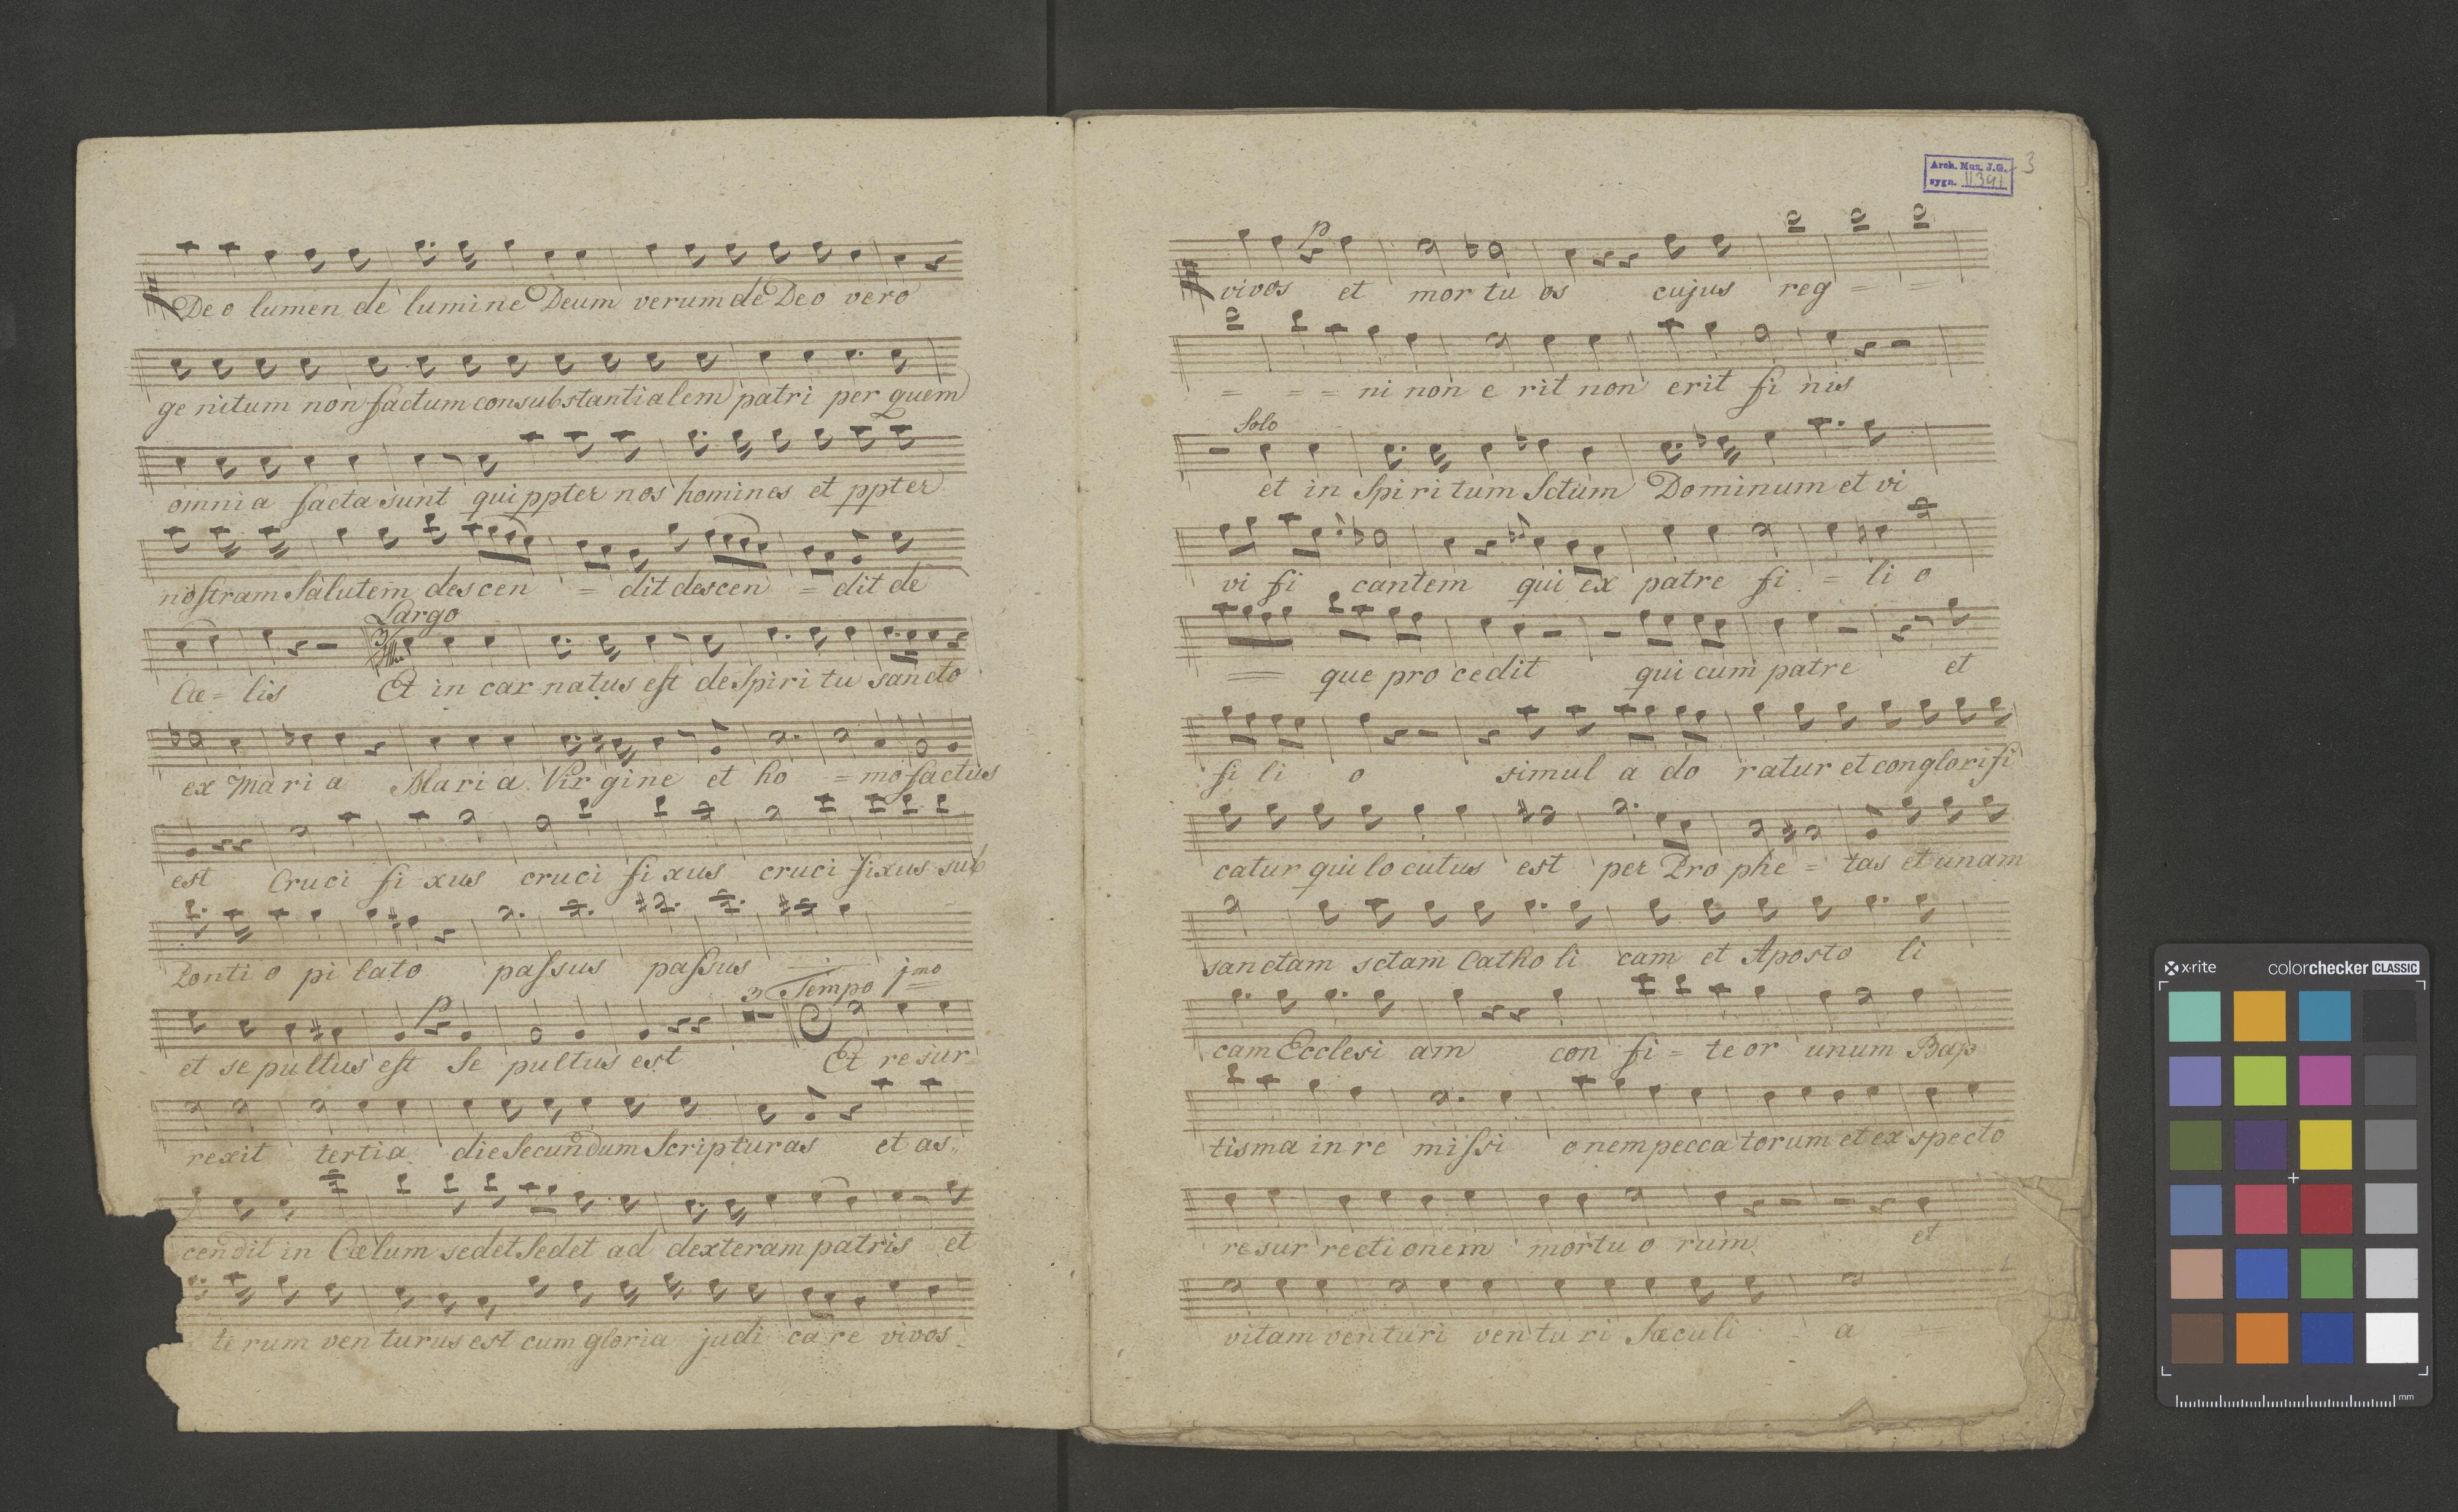 De o lumen de lumine Deum verum de Deo vero
ge nitum non factum consubstantialem patri per quem
omnia facta sunt qui ppter nos homines et ppter
nostram Salutem descen = dit descen = dit de
Largo
Cæ = lis Et in car natus est de Spiri tu sancto
ex Mari a Mari a Vir gine et ho = mo factus
est Cruci fi xus cruci fi xus cruci fixus sub
Ponti o pi lato passus passus
3 Tempo jmo
p
et se pultus est Se pultus est Et re sur
rexit tertia die Secundum Scripturas et as
cendit in Cælum sedet Sedet ad dexteram patris et
te rum ven turus est cum gloria judi ca re vivos
Arch. Muz. J.G.
sygn. II 391
3
p
vivos et mor tu os cujus reg = =
= = = ni non e rit non erit fi nis
Solo
et in Spi ri tum Sctum Dominum et vi
vi fi cantem qui ex patre fi = li o
= que pro cedit qui cum patre et
fi li o simul a do ratur et conglorifi
catur qui lo cutus est per Pro phe = tas et unam
sanctam sctam Catho li cam et Aposto li
cam Ecclesi am con fi = te or unum Bap
tisma in re missi onem pecca torum et ex specto
resur recti onem mortu o rum et
vitam venturi ventu ri Sæculi a
x·rite colorchecker CLASSIC
mm